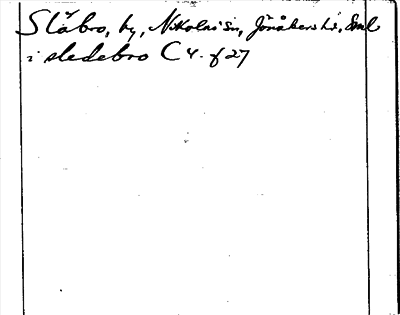 Släbro, by, Nikolai sn, Jönåkers hd, Södl
i sledebro C 4. f 27